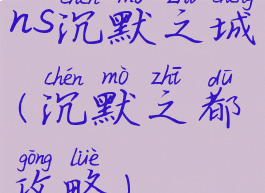 chén mò zhī chéng
ns沉默之城
chén mò zhī dū
(沉默之都
gōng lüè
攻略)